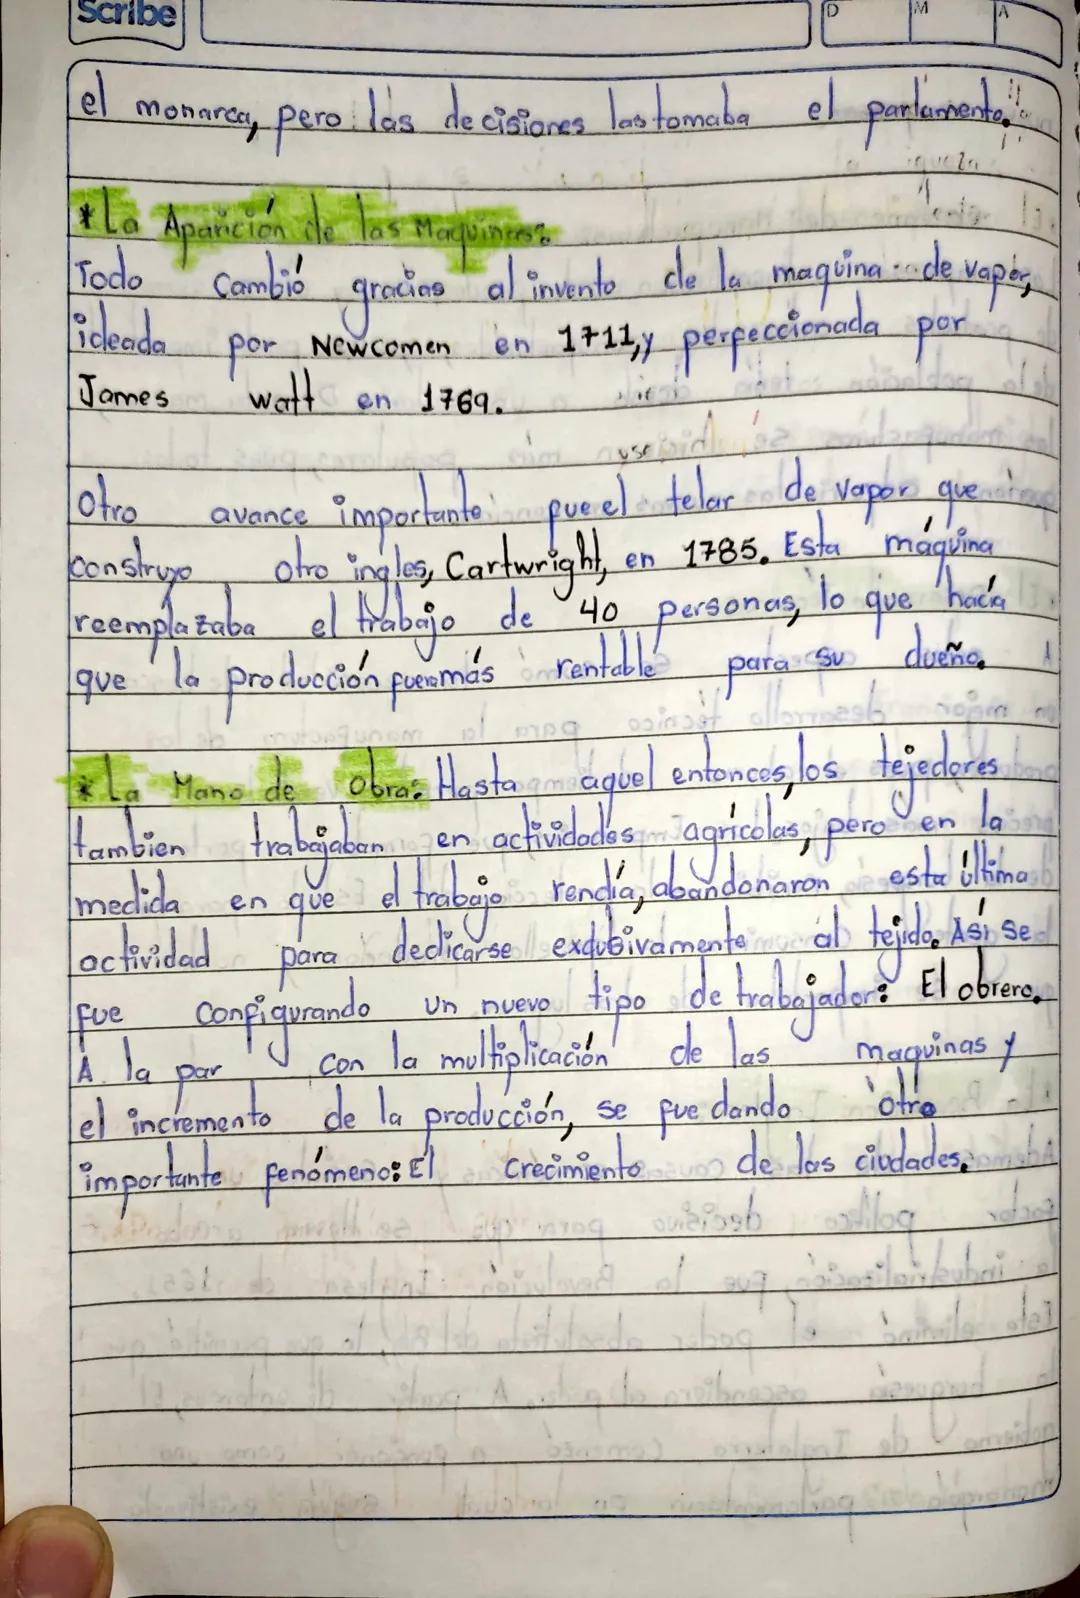 Scribe
D M A
el monarca, pero las decisiones las tomaba el parlamento.
* La Aparición de las Maquinas:
Todo cambió gracias al invento de la maquina de vapor,
ideada por Newcomen en 1711, y perfeccionada por
James watt en 1769.
Otro avance importante fue el telar de vapor que
construyo otro ingles, Cartwright, en 1785. Esta máquina
reemplazaba el trabajo de 40 personas, lo que hacía
que la producción fuera más rentable para su dueño.
* La Mano de Obra: Hasta aquel entonces, los tejedores
tambien trabajaban en actividades agrícolas, pero en la
medida en que el trabajo rendía, abandonaron esta última
actividad para dedicarse exclusivamente al tejido. Así se
fue configurando un nuevo tipo de trabajador: El obrero.
A la par con la multiplicación de las maquinas y
el incremento de la producción, se fue dando otro
importante fenómeno: El crecimiento de las ciudades.